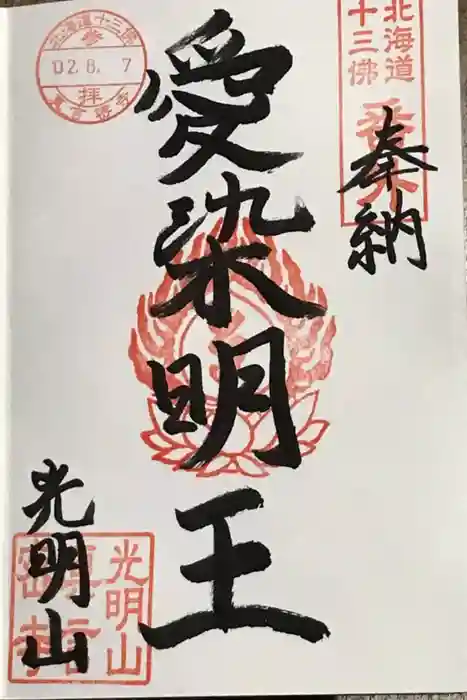 北海道
十三佛
番外
奉納
愛染明王
北海道十三佛
参
02.8.7
拝
光明山
光明山